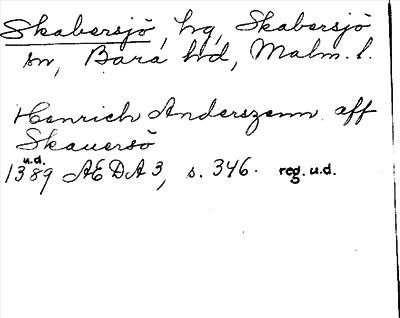 Skabersjö, hg, Skabersjö
sn, Bara hd, Malm. l.
Henrich Anderszenn aff
Skauersö
u.d.
1389 AEDA 3, s. 346. reg. u.d.